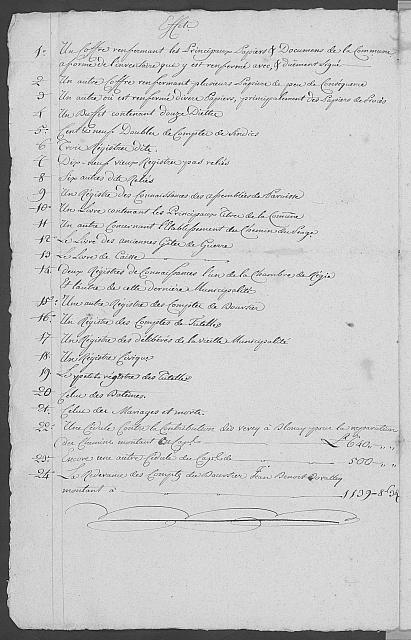 Effets
1º Un Coffre renfermant les Principaux Papiers & Documens de la Commune
a forme de l'inventaire que y est renfermé avec, & duëment Signé
2 Un autre Coffre renfermant plusieurs Papiers de peu de Conséquence
3 Un autre, où est renfermé divers Papiers, principalement des Papiers de
4 Un Buffet contenant douze
5 Cent les neuf Doubles de Comptes de Sindics
6 Trois Registres dits
7 Dix-neuf vieux Registres pas reliés
8 Six autres dits Reliés
9 Un Régistre des Connaissances des assemblées de Paroisse
10 Un Livre contenant les Principaux titres de la Comune
11 Un autre Concernant l'Etablissement du Chemin du
12 Le Livre des anciennes de Guerre
13 Le Livre de Caisse
14 Deux Régistres de Connaissances l'un de la Chambre de Régie
Et l'autre de cette derniere Municipalité
15 Une autre Régistre des Comptes de Boursier
16 Un Régistre des Comptes de Tutelles
17 Un Régistre des délibérés de la vieille Municipalité
18 Un Régistre Civique
19 Le petit régistre des Tutelles
20 Celui des Batêmes
21 Celui des Mariages et morts
22 Une Cédule Contre la Contribution des Vevey à Blonay pour la réparation
des Chemins montant L 640
23 Encore une autre Cédule 500
24 La Redevance des Compts du Boursier Jean Benoit
montant à 1139-8